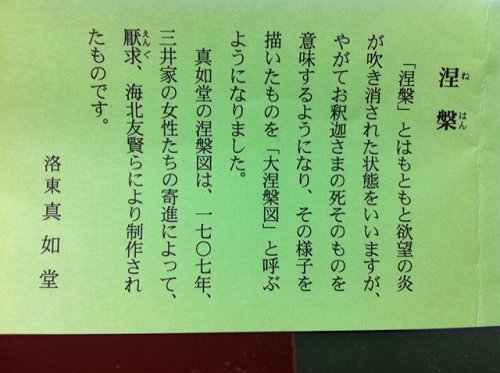 涅槃
ね
はん
「涅槃」とはもともと欲望の炎
が吹き消された状態をいいますが、
やがてお釈迦さまの死そのものを
意味するようになり、その様子を
描いたものを「大涅槃図」と呼ぶ
ようになりました。
真如堂の涅槃図は、一七〇七年、
三井家の女性たちの寄進によって、
厭求、海北友賢らにより制作され
えんぐ
たものです。
洛東真如堂